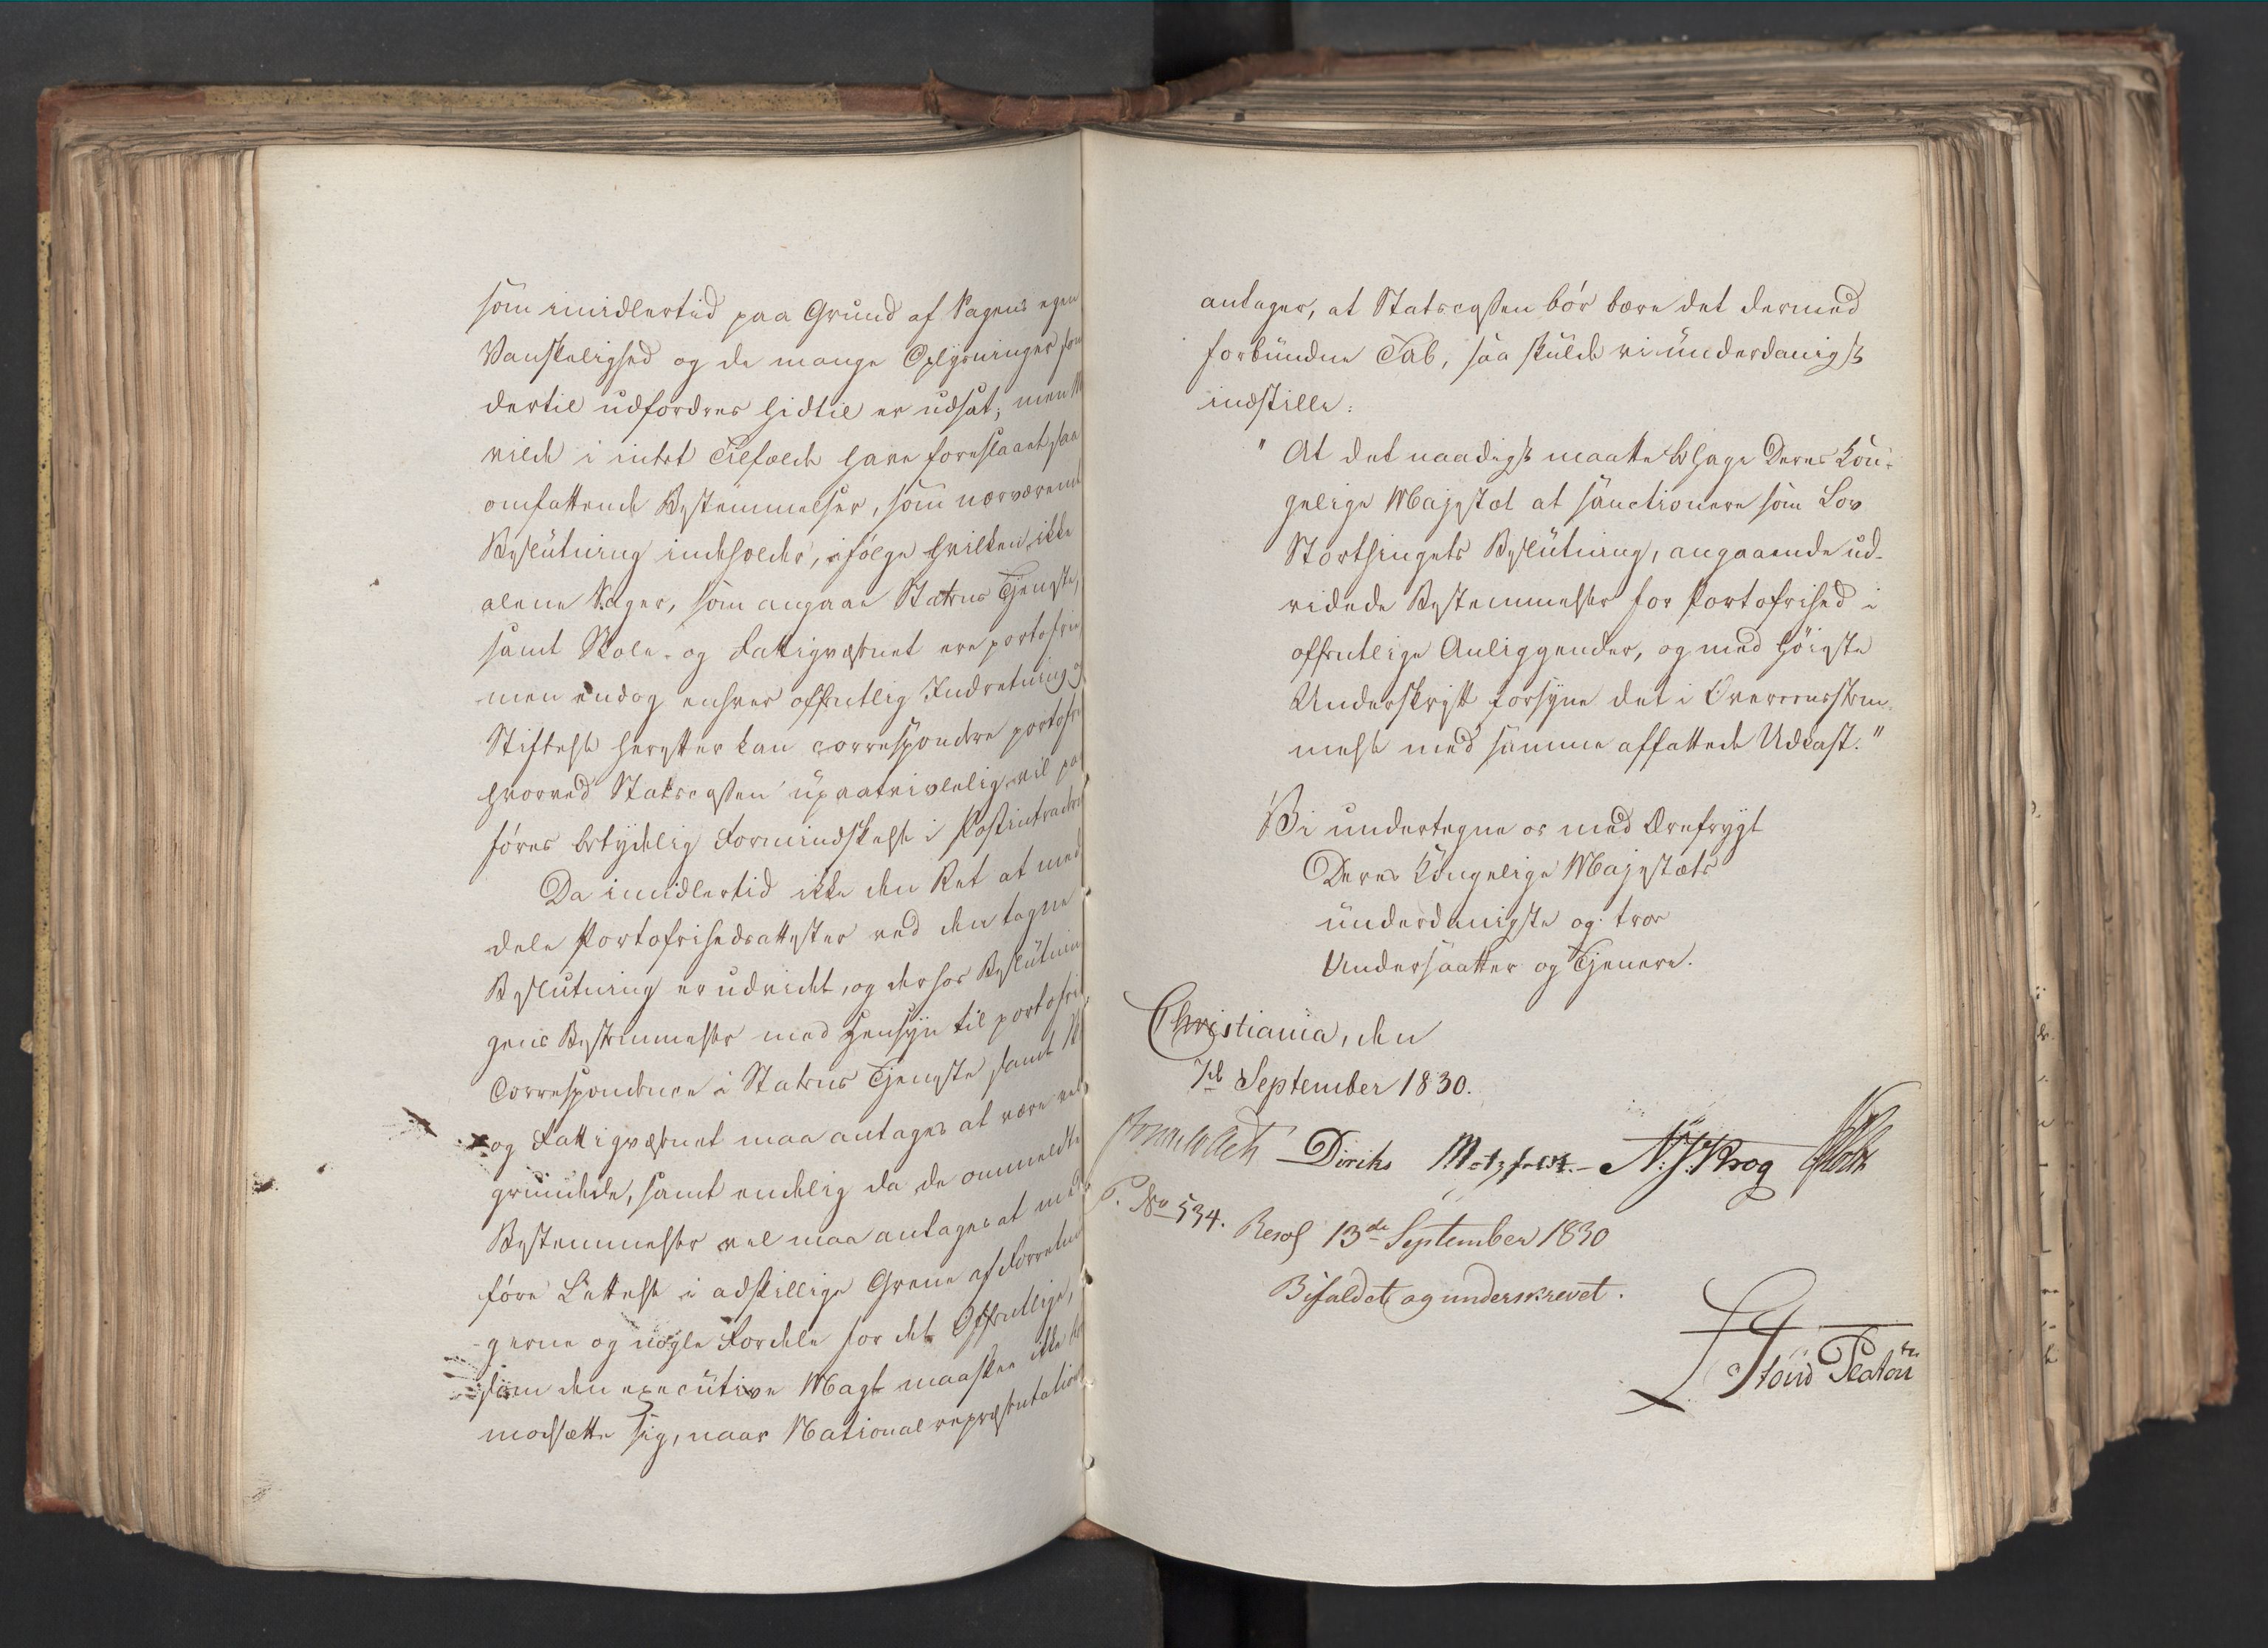 som imidlertid paa Grund af Sagens egen
Vanskelighed og de mange Oplysninger som
dertil udfordres hidtil er udsat; men
vilde i intet Tilfælde have foreslaaet saa
omfattende Bestemmelser, som nærværende
Beslutning indeholder, ifølge hvilken ikke
alene Sager, som angaae Statens Tjeneste,
samt Skole- og Fattigvæsenet ere portofrie,
men endog enhver offentlig Indretning og
Stiftelse herefter kan correspondere portofri
hvorved Statscassen upaatvivlelig vil paa
føres betydelig Formindskelse i Postintraderne
Da imidlertid ikke den Ret at med
dele Portofrihedsattester ved den tagne
Beslutning er udvidet, og derhos Beslutnin
gens Bestemmelser med Hensyn til portofri
Correspondence i Statens Tjeneste samt
og Fattigvæsenet maa antages at være vel
grundede, samt endelig da de ommeldte
Bestemmelser vel maa antages at med
føre Lettelse i adskillige Grene af Forretnin
gerne og nogle Fordele for det Offentlige,
som den executive Magt maaskee ikke bør
modsætte sig, naar Nationalrepræsentationen
antager, at Statscassen bør bære det dermed
forbundne Tab, saa skulde vi underdanigst
indstille:
"At det naadigst maatte behage Deres Kon-
gelige Majestæt at sanctionere som Lov
Storthingets Beslutning, angaaende ud-
videde Bestemmelser for Portofrihed i
offentlige Anliggender, og med Høieste
Underskrift forsyne det i Overeensstem-
melse med samme affattede Udkast."
Vi undertegne os med Ærefrygt
Deres Kongelige Majestæts
underdanigste og troe
Undersaatter og Tjenere.
Christiania, den
7de September 1830.
Collett Diriks Motzfeldt. N. J. Krog Holst
P. No 534. Resol 13de September 1830
Bifaldet og underskrevet.
Platou